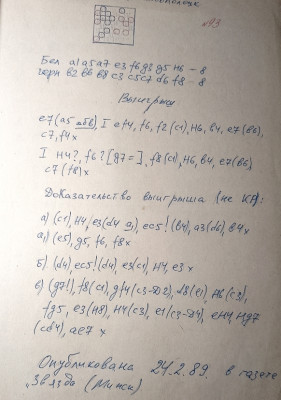 №3
Бел a1 a5 a7 e3 f6 g3 g5 h6 – 8
черн b2 b6 b8 c3 c5 c7 d6 f8 – 8
Выигрыш
e7 (a5 I ef4, f6, f2 (c1), H6, b4, e7 (b6),
c7, f4x
I h4?, f6? [g7=], f8 (c1), H6, b4, e7 (b6)
c7 (f8) x
Доказательство выигрыша (не КП):
а) (c1), H4, e3 (d4 ec5! (b4), a3 (d6) b4x
а₁) (e5), g5, f6, f8x
б) (d4) ec5! (d4) e3 (c1), H4, e3 x
в) (g7!), f8 (c1), gf4 (c3-D2), d8 (e1), H6 (c3),
fg5, e3 (H8), H4 (c3), e1 (c3-D4), eH4 Hg7
(cd4), ae7 x
Опубликована 24.2.89 в газете
"Звязда (Минск)